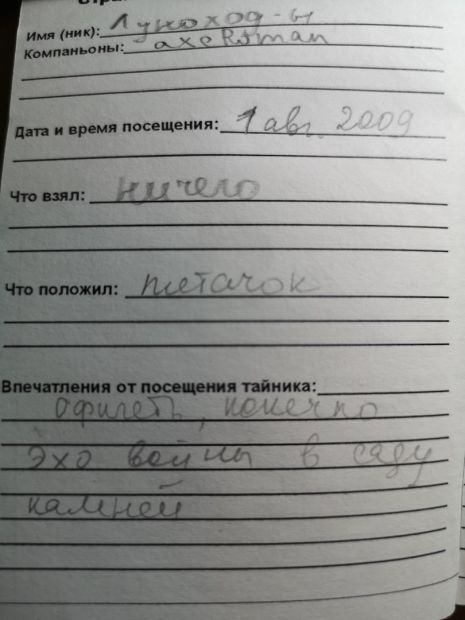 Имя (ник): Луноход-ы
Компаньоны: axeRoman
Дата и время посещения: 1 авг. 2009
Что взял: ничего
Что положил: пятачок
Впечатления от посещения тайника:
Офигеть, конечно
Эхо войны в саду
камней